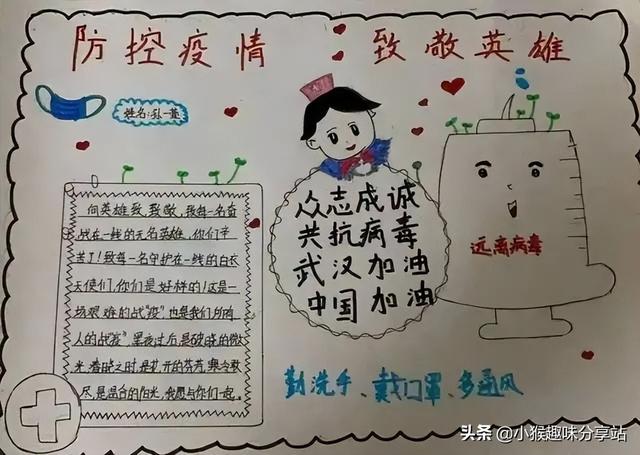 防控疫情 致敬英雄
姓名:孙一萱
向英雄致,致敬,我每一名奋
战在一线的无名英雄,你们辛
苦了!致每一名守护在一线的白衣
天使们,你们是好样的!这是一
场艰难的战"疫"也是我们所有
人的战"疫"黑夜过后,是破晓的微
光,
之时,是花开的芬芳,寒冷散
尽,是温白的阳光,我愿与你们一起。
众志成诚
共抗病毒
武汉加油
中国加油
远离病毒
勤洗手、戴口罩、多通风
头条 @小猴趣味分享站